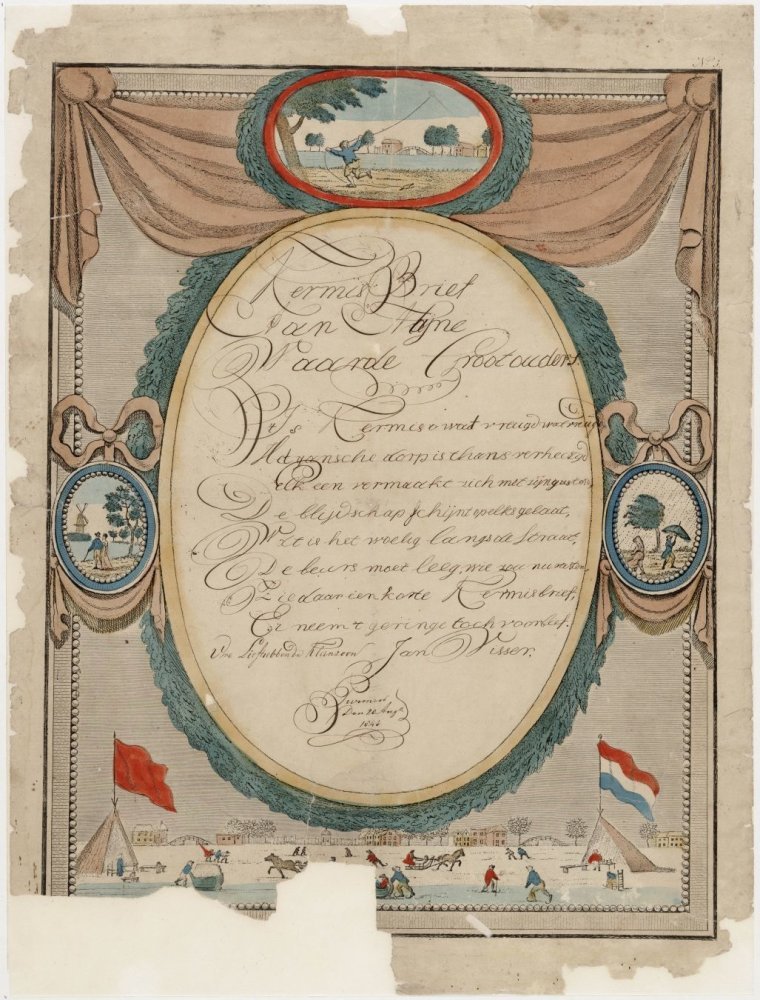 No 5
Kermis Brief
Van Mijne
Waarde Grootouders.
't Is Kermis o wat vreugd wat
dorp is thans verheugd
Elk een vermaakt zich met zijn
De blijdschap schijnt op elks gelaat,
Wat is het woelig langs de Straat,
De beurs moet leeg, wie zou nu
Zie daar een korte Kermisbrief,
Ei neem 't geringe toch voor lief.
Uwe Liefhebbende Kleinzoon Jan Visser.
Den 20 Augt